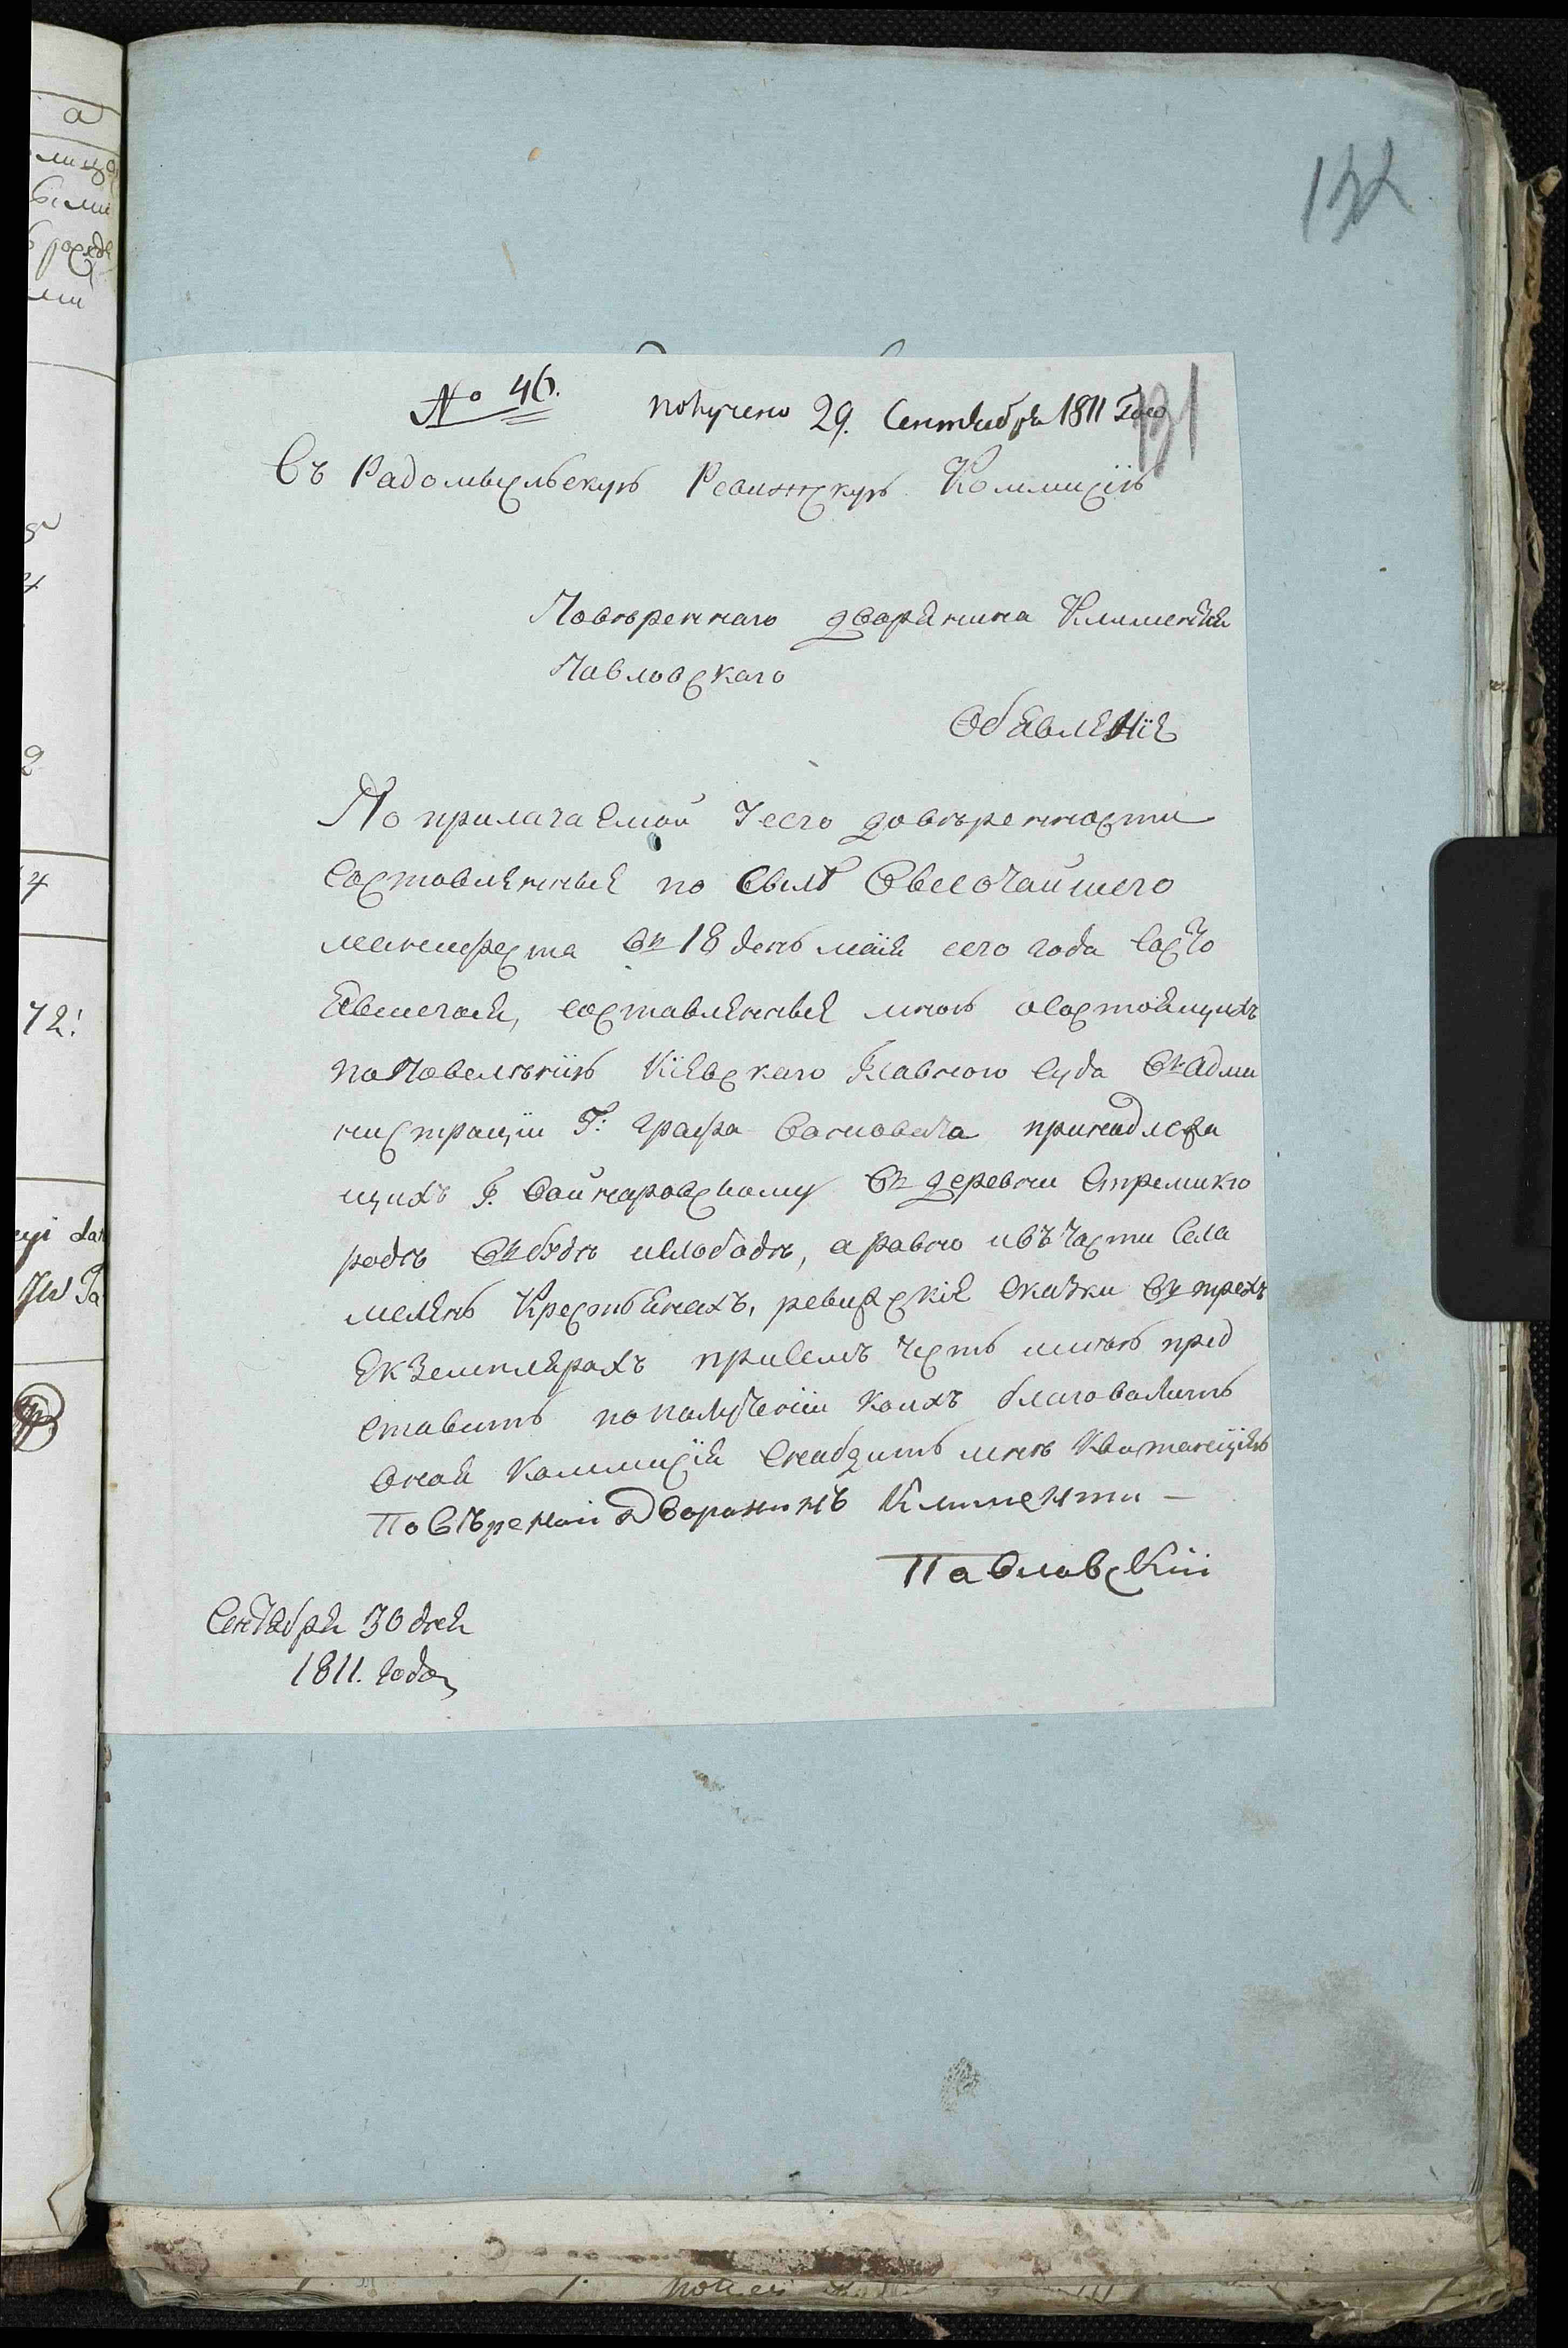 132
131
№ 46. получено 29. Сентября 1811 Года
Въ Радомысльскую Ревижскую Коммисїю
Повѣреннаго дворянина Климентїя
Павловскаго
Обявленїе
По прилагаемой у сего довѣренности
составленныя по силѣ Высочайшего
манифеста въ 18 день маїя сего года
составленныя мною о состоящихъ
по повеленїю Кїевскаго Главного Суда въ Адми
нистрацїи Г: Графа принадлежа
щихъ Г. Войнаровскому въ деревни Стремиго
родѣ слободѣ, а равно и въ части села
меленѣ Крестьянахъ, ревижскїе сказки въ трехъ
екземплярахъ при семъ честь имѣю пред
ставить по полученїи коихъ благоволитъ
оная Коммисїя снабдить мнѣ Квитанцїею
Повѣреной Дворанинъ Климентн —
Павловскїй
Сентября 30 дня
1811. года